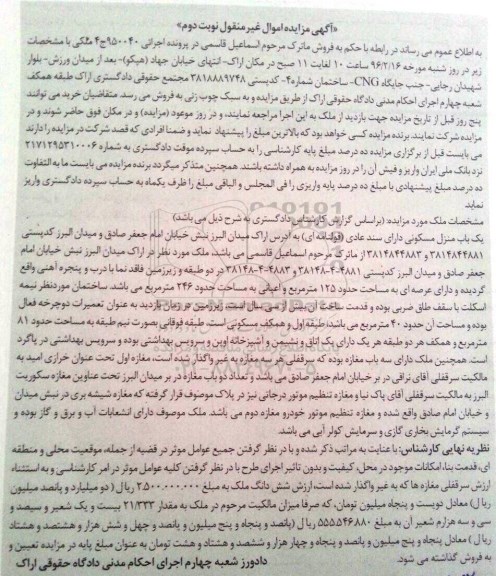 «آگهی مزایده اموال غیر منقول نوبت دوم»
به اطلاع عموم می رساند در رابطه با حکم به فروش ماترک مرحوم اسماعیل قاسمی در پرونده اجرائی ۹۵۰۰۴۰ج۴ ملکی با مشخصات
زیر در روز شنبه مورخه ۹۶/۲/۱۶ ساعت ۱۰ لغایت ۱۱ صبح در مکان اراک- انتهای خیابان جهاد (هپکو)- بعد از میدان ورزش- بلوار
شهیدان رجایی- جنب جایگاه CNG- ساختمان شماره۴- کدپستی ۳۸۱۸۸۸۹۷۴۸ مجتمع حقوقی دادگستری اراک طبقه همکف
شعبه چهارم اجرای احکام مدنی دادگاه حقوقی اراک از طریق مزایده و به سبک چوب زنی به فروش می رسد. متقاضیان خرید می توانند
پنج روز قبل از تاریخ مزایده جهت بازدید از ملک به این اجرا مراجعه نمایند، و در روز موعود (مزایده) و در مکان فوق حاضر شوند و در
مزایده شرکت نمایند. برنده مزایده کسی خواهد بود که بالاترین مبلغ را پیشنهاد نماید و ضمنا افرادی که قصد شرکت در مزایده را دارند
می بایست قبل از برگزاری مزایده ده درصد مبلغ پایه کارشناسی را به حساب سپرده موقت دادگستری به شماره ۲۱۷۱۲۹۵۳۱۰۰۰۶
نزد بانک ملی ایران واریز و فیش آن را در روز مزایده به همراه داشته باشند. همچنین متذکر میگردد برنده مزایده می بایست ما به التفاوت
ده درصد مبلغ پیشنهادی با مبلغ ده درصد پایه واریزی را فی المجلس و الباقی مبلغ را ظرف یکماه به حساب سپرده دادگستری واریز
نماید
مشخصات ملک مورد مزایده: (براساس گزارش کارشناس دادگستری به شرح ذیل می باشد)
یک باب منزل مسکونی دارای سند عادی (قولنامه ای) به آدرس اراک میدان البرز نبش خیابان امام جعفر صادق و میدان البرز کدپستی
۳۸۱۴۸۴۴۸۸۱ و ۳۸۱۴۸۴۴۸۸۳ از ماترک مرحوم اسماعیل قاسمی می باشد. ملک مورد نظر در اراک میدان البرز نبش خیابان امام
جعفر صادق و میدان البرز کدپستی ۴۸۸۱-۴-۳۸۱۴۸ و ۴۸۸۳-۴-۳۸۱۴۸ در دو طبقه و زیرزمین فاقد نما با درب و پنجره آهنی واقع
گردیده و دارای عرصه ای به مساحت حدود ۱۲۵ مترمربع و اعیانی به مساحت حدود ۲۴۶ مترمربع می باشد. ساختمان موردنظر نیمه
اسکلت با سقف طاق ضربی بوده و قدمت ساخت آن بیش از سی سال است. زیرزمین در زمان بازدید به عنوان تعمیرات دوچرخه فعال
بوده و مساحت آن حدود ۴۰ مترمربع می باشد، طبقه اول و همکف مسکونی است. طبقه فوقانی بصورت نیم طبقه به مساحت حدود ۸۱
مترمربع و همکف هر دو طبقه هر یک دارای یک اتاق و نشیمن و آشپزخانه اوپن و سرویس بهداشتی بوده و سرویس بهداشتی در پاگرد
است. همچنین ملک دارای سه باب مغازه بوده که سرقفلی هر سه مغازه به غیر واگذار شده است، مغازه اول تحت عنوان خرازی امید به
مالکیت سرقفلی آقای نراقی در بر خیابان امام جعفر صادق می باشد و تعداد دو باب مغازه در بر میدان البرز تحت عناوین مغازه سکوریت
البرز به مالکیت سرقفلی آقای پاک نیا و مغازه تنظیم موتور درجاتی نیز در پلاک موصوف قرار گرفته که مغازه شیشه بری در نبش میدان
و خیابان امام صادق واقع شده و مغازه تنظیم موتور خودرو مغازه دوم می باشد. ملک موصوف دارای انشعابات آب و برق و گاز بوده و
سیستم گرمایش بخاری گازی و سرمایش کولر آبی می باشد.
نظریه نهایی کارشناس: با عنایت به مراتب ذکر شده و با در نظر گرفتن جمیع عوامل موثر در قضیه از جمله، موقعیت محلی و منطقه
ای، قدمت بنا، امکانات موجود در محل، کیفیت و بدون تاثیر اجرای طرح یا در نظر گرفتن کلیه عوامل موثر در امر کارشناسی و به استثناء
ارزش سرقفلی مغازه ها که به غیر واگذار شده است، ارزش شش دانگ ملک به مبلغ ۲,۵۰۰,۰۰۰,۰۰۰ ریال (دو میلیارد و پانصد میلیون
ریال) معادل دویست و پنجاه میلیون تومان، که صرفا میزان مالکیت مرحوم در ملک به مقدار ۲۱/۳۳۳ بیست و یک شعیر و سیصد و
سی و سه هزارم شعیر آن به مبلغ ۵۵۵,۵۴۶,۸۸۰ ریال (پانصد و پنجاه و پنج میلیون و پانصد و چهل و شش هزار و هشتصد و هشتاد
ریال) معادل پنجاه و پنج میلیون و پانصد و پنجاه و چهار هزار و ششصد و هشتاد و هشت تومان به عنوان مبلغ پایه در مزایده تعیین و
به فروش گذاشته می شود.
دادورز شعبه چهارم اجرای احکام مدنی دادگاه حقوقی اراک